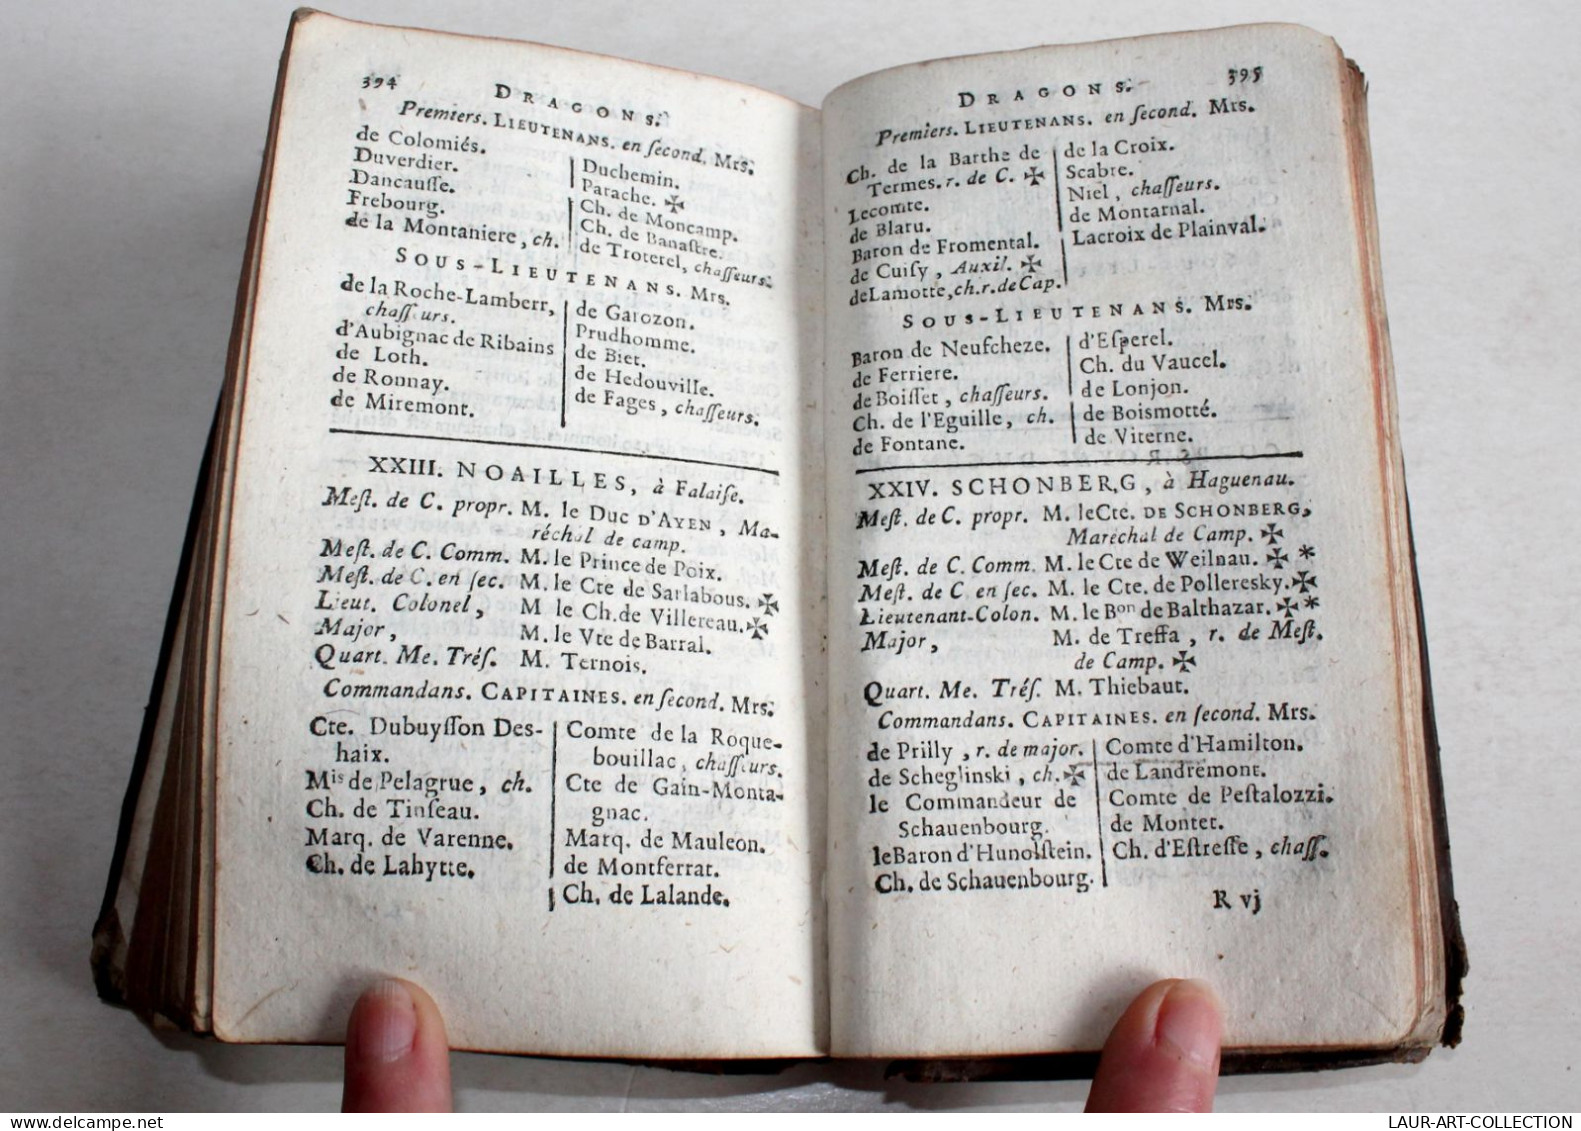 394
DRAGONS.
Premiers. LIEUTENANS. en ſecond. Mrs.
de Colomiés.
Duverdier.
Dancauſſe.
Frebourg.
de la Montaniere, ch.
Duchemin.
Parache. ✠
Ch. de Moncamp.
Ch. de Banaſtre.
de Troterel, chaſſeurs.
SOUS-LIEUTENANS. Mrs.
de la Roche-Lamberr,
chaſſ urs.
d'Aubignac de Ribains
de Loth.
de Ronnay.
de Miremont.
de Garozon.
Prudhomme.
de Biet.
de Hedouville.
de Fages, chaſſeurs.
XXIII. NOAILLES, à Falaiſe.
Meſt. de C. propr. M. le Duc D'AYEN, Ma-
réchal de camp.
Meſt. de C. Comm. M. le Prince de Poix.
Meſt. de C. en ſec. M. le Cte de Sarlabous. ✠
Lieut. Colonel, M le Ch. de Villereau. ✠
Major, M. le Vte de Barral.
Quart. Me. Tréſ. M. Ternois.
Commandans. CAPITAINES. en ſecond. Mrs.
Cte. Dubuyſſon Des-
haix.
Mis de Pelagrue, ch.
Ch. de Tinſeau.
Marq. de Varenne.
Ch. de Lahytte.
Comte de la Roque-
bouillac, chaſſurs.
Cte de Gain-Monta-
gnac.
Marq. de Mauleon.
de Montferrat.
Ch. de Lalande.
395
DRAGONS.
Premiers. LIEUTENANS. en ſecond. Mrs.
Ch. de la Barthe de
Termes. r. de C. ✠
Lecomte.
de Blaru.
Baron de Fromental.
de Cuiſy, Auxil. ✠
de Lamotte, ch. r. de Cap.
de la Croix.
Scabre.
Niel, chaſſeurs.
de Montarnal.
Lacroix de Plainval.
SOUS-LIEUTENANS. Mrs.
Baron de Neufcheze.
de Ferriere.
de Boiſſet, chaſſeurs.
Ch. de l'Eguille, ch.
de Fontane.
d'Eſperel.
Ch. du Vaucel.
de Lonjon.
de Boismotté.
de Viterne.
XXIV. SCHONBERG, à Haguenau.
Meſt. de C. propr. M. le Cte. DE SCHONBERG,
Maréchal de Camp. ✠
Meſt. de C. Comm. M. le Cte de Weilnau. ✠ *
Meſt. de C en ſec. M. le Cte. de Polleresky. ✠
Lieutenant-Colon. M. le Bon de Balthazar. ✠ *
Major, M. de Treffa, r. de Meſt.
de Camp. ✠
Quart. Me. Tréſ. M. Thiebaut.
Commandans. CAPITAINES. en ſecond. Mrs.
de Prilly, r. de major.
de Scheglinski, ch. ✠
le Commandeur de
Schauenbourg.
le Baron d'Hunolſtein.
Ch. de Schauenbourg.
Comte d'Hamilton.
de Landremont.
Comte de Peſtalozzi.
de Montet.
Ch. d'Eſtreſſe, chaſſ.
R vj
LAUR-ART-COLLECTION